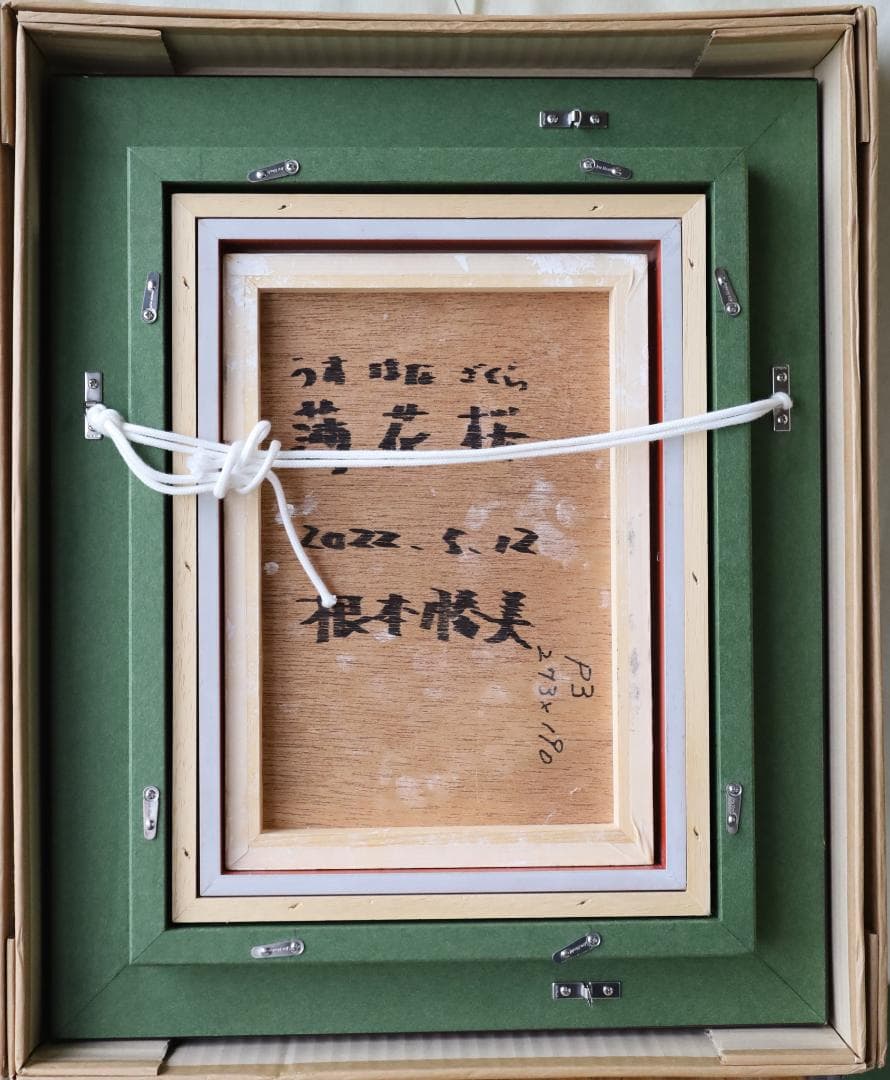 うす はな ざくら
薄 花 桜
2022. 5. 12
根本勝美
P3
273×190